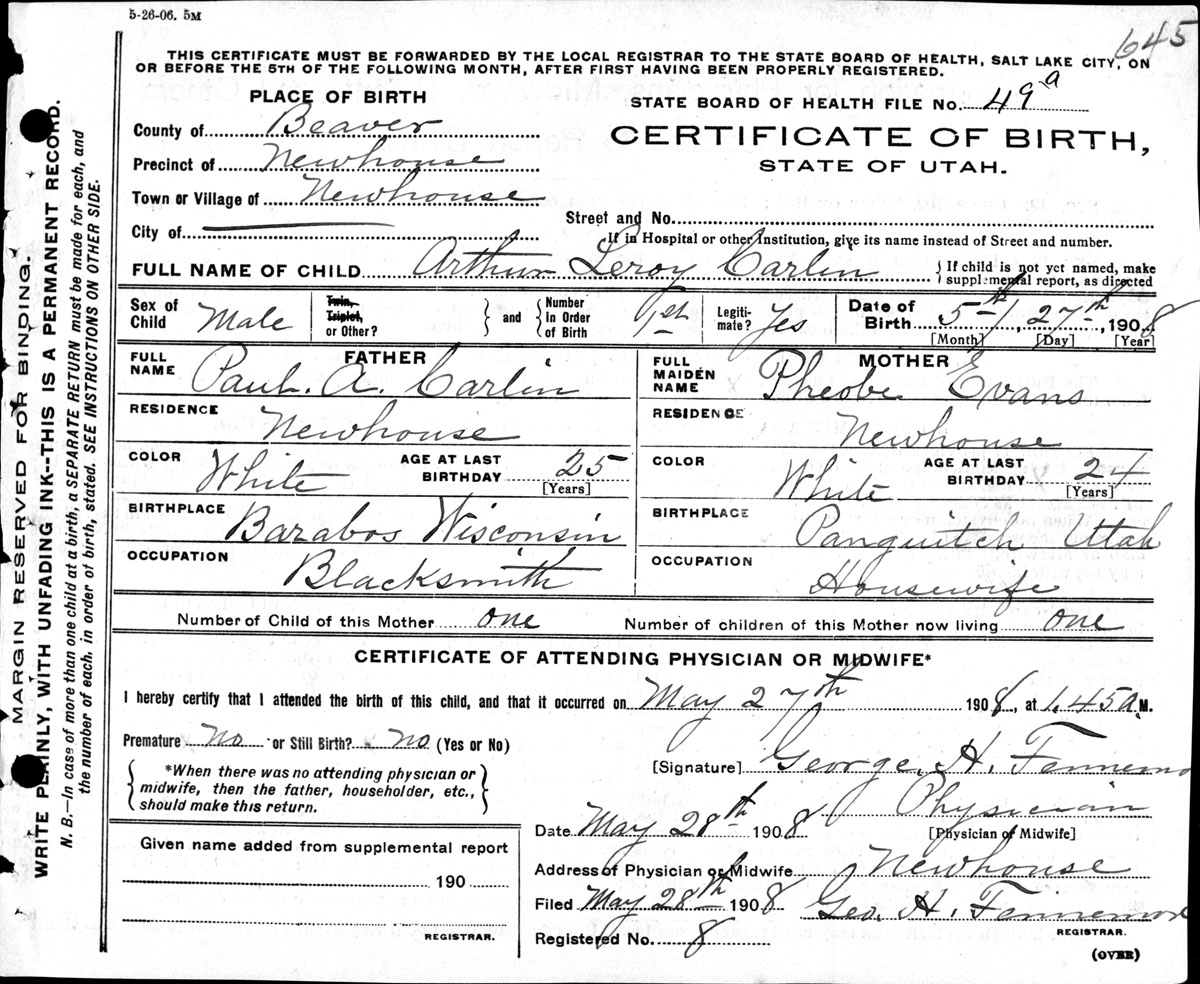 5-26-06. 5M
645
THIS CERTIFICATE MUST BE FORWARDED BY THE LOCAL REGISTRAR TO THE STATE BOARD OF HEALTH, SALT LAKE CITY, ON
OR BEFORE THE 5TH OF THE FOLLOWING MONTH, AFTER FIRST HAVING BEEN PROPERLY REGISTERED.
PLACE OF BIRTH
STATE BOARD OF HEALTH FILE No. 49 a
County of Beaver
CERTIFICATE OF BIRTH,
Precinct of Newhouse
STATE OF UTAH.
Town or Village of Newhouse
Street and No.
City of
If in Hospital or other Institution, give its name instead of Street and number.
FULL NAME OF CHILD Arthur Leroy Carlin
{ If child is not yet named, make
supplemental report, as directed
Sex of Child Male
Twin, Triplet, or Other? } and { Number In Order of Birth 1st
Legiti-mate? Yes
Date of Birth 5th, 27th, 1908
[Month] [Day] [Year]
FATHER
FULL NAME Paul. A. Carlin
RESIDENCE Newhouse
COLOR White AGE AT LAST BIRTHDAY 25 [Years]
BIRTHPLACE Barabos Wisconsin
OCCUPATION Blacksmith
MOTHER
FULL MAIDEN NAME Pheobe Evans
RESIDENCE Newhouse
COLOR White AGE AT LAST BIRTHDAY 24 [Years]
BIRTHPLACE Panguitch Utah
OCCUPATION Housewife
Number of Child of this Mother one Number of children of this Mother now living one
CERTIFICATE OF ATTENDING PHYSICIAN OR MIDWIFE*
I hereby certify that I attended the birth of this child, and that it occurred on May 27th 1908, at 1.45 a. M.
Premature No or Still Birth? No (Yes or No)
{ *When there was no attending physician or
midwife, then the father, householder, etc.,
should make this return. }
[Signature] George. H. Fennemo
Physician
[Physician of Midwife]
Date May 28th 1908
Address of Physician or Midwife Newhouse
Filed May 28th 1908 Geo. H. Fennemor
REGISTRAR.
Registered No. 8
(OVER)
Given name added from supplemental report
190
REGISTRAR.
MARGIN RESERVED FOR BINDING.
WRITE PLAINLY, WITH UNFADING INK--THIS IS A PERMANENT RECORD.
N. B.—In case of more than one child at a birth, a SEPARATE RETURN must be made for each, and
the number of each, in order of birth, stated. SEE INSTRUCTIONS ON OTHER SIDE.